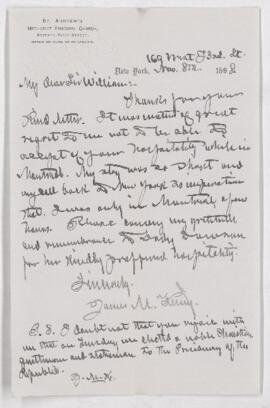 ST. ANDREW'S
METHODIST EPISCOPAL CHURCH,
169 West 73rd. St.
New York, Nov. 8th. 1888
My Dear Sir William:
Thanks for your
kind letter. It was matter of great
regret to me not to be able to
accept of your hospitality while in
Montreal. My stay was so short and
my call back to New York so imperative
that I was only in Montreal a few
hours. Please convey my gratitude
and remembrance to Lady Dawson
for her kindly proffered hospitality.
Sincerely,
James M. King.
P.S. I doubt not that you rejoice with
us that on Tuesday we elected a noble Christian
gentleman and statesman to the Presidency of the
Republic.
J. M. K.